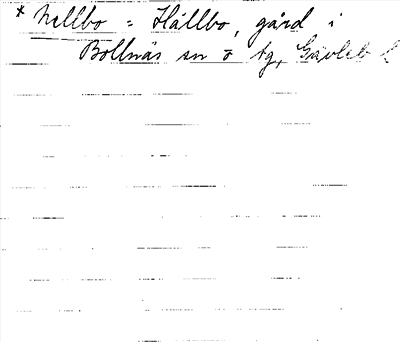 * hellbo = Hällbo, gård i
Bollnäs sn o tg, Gävleb l